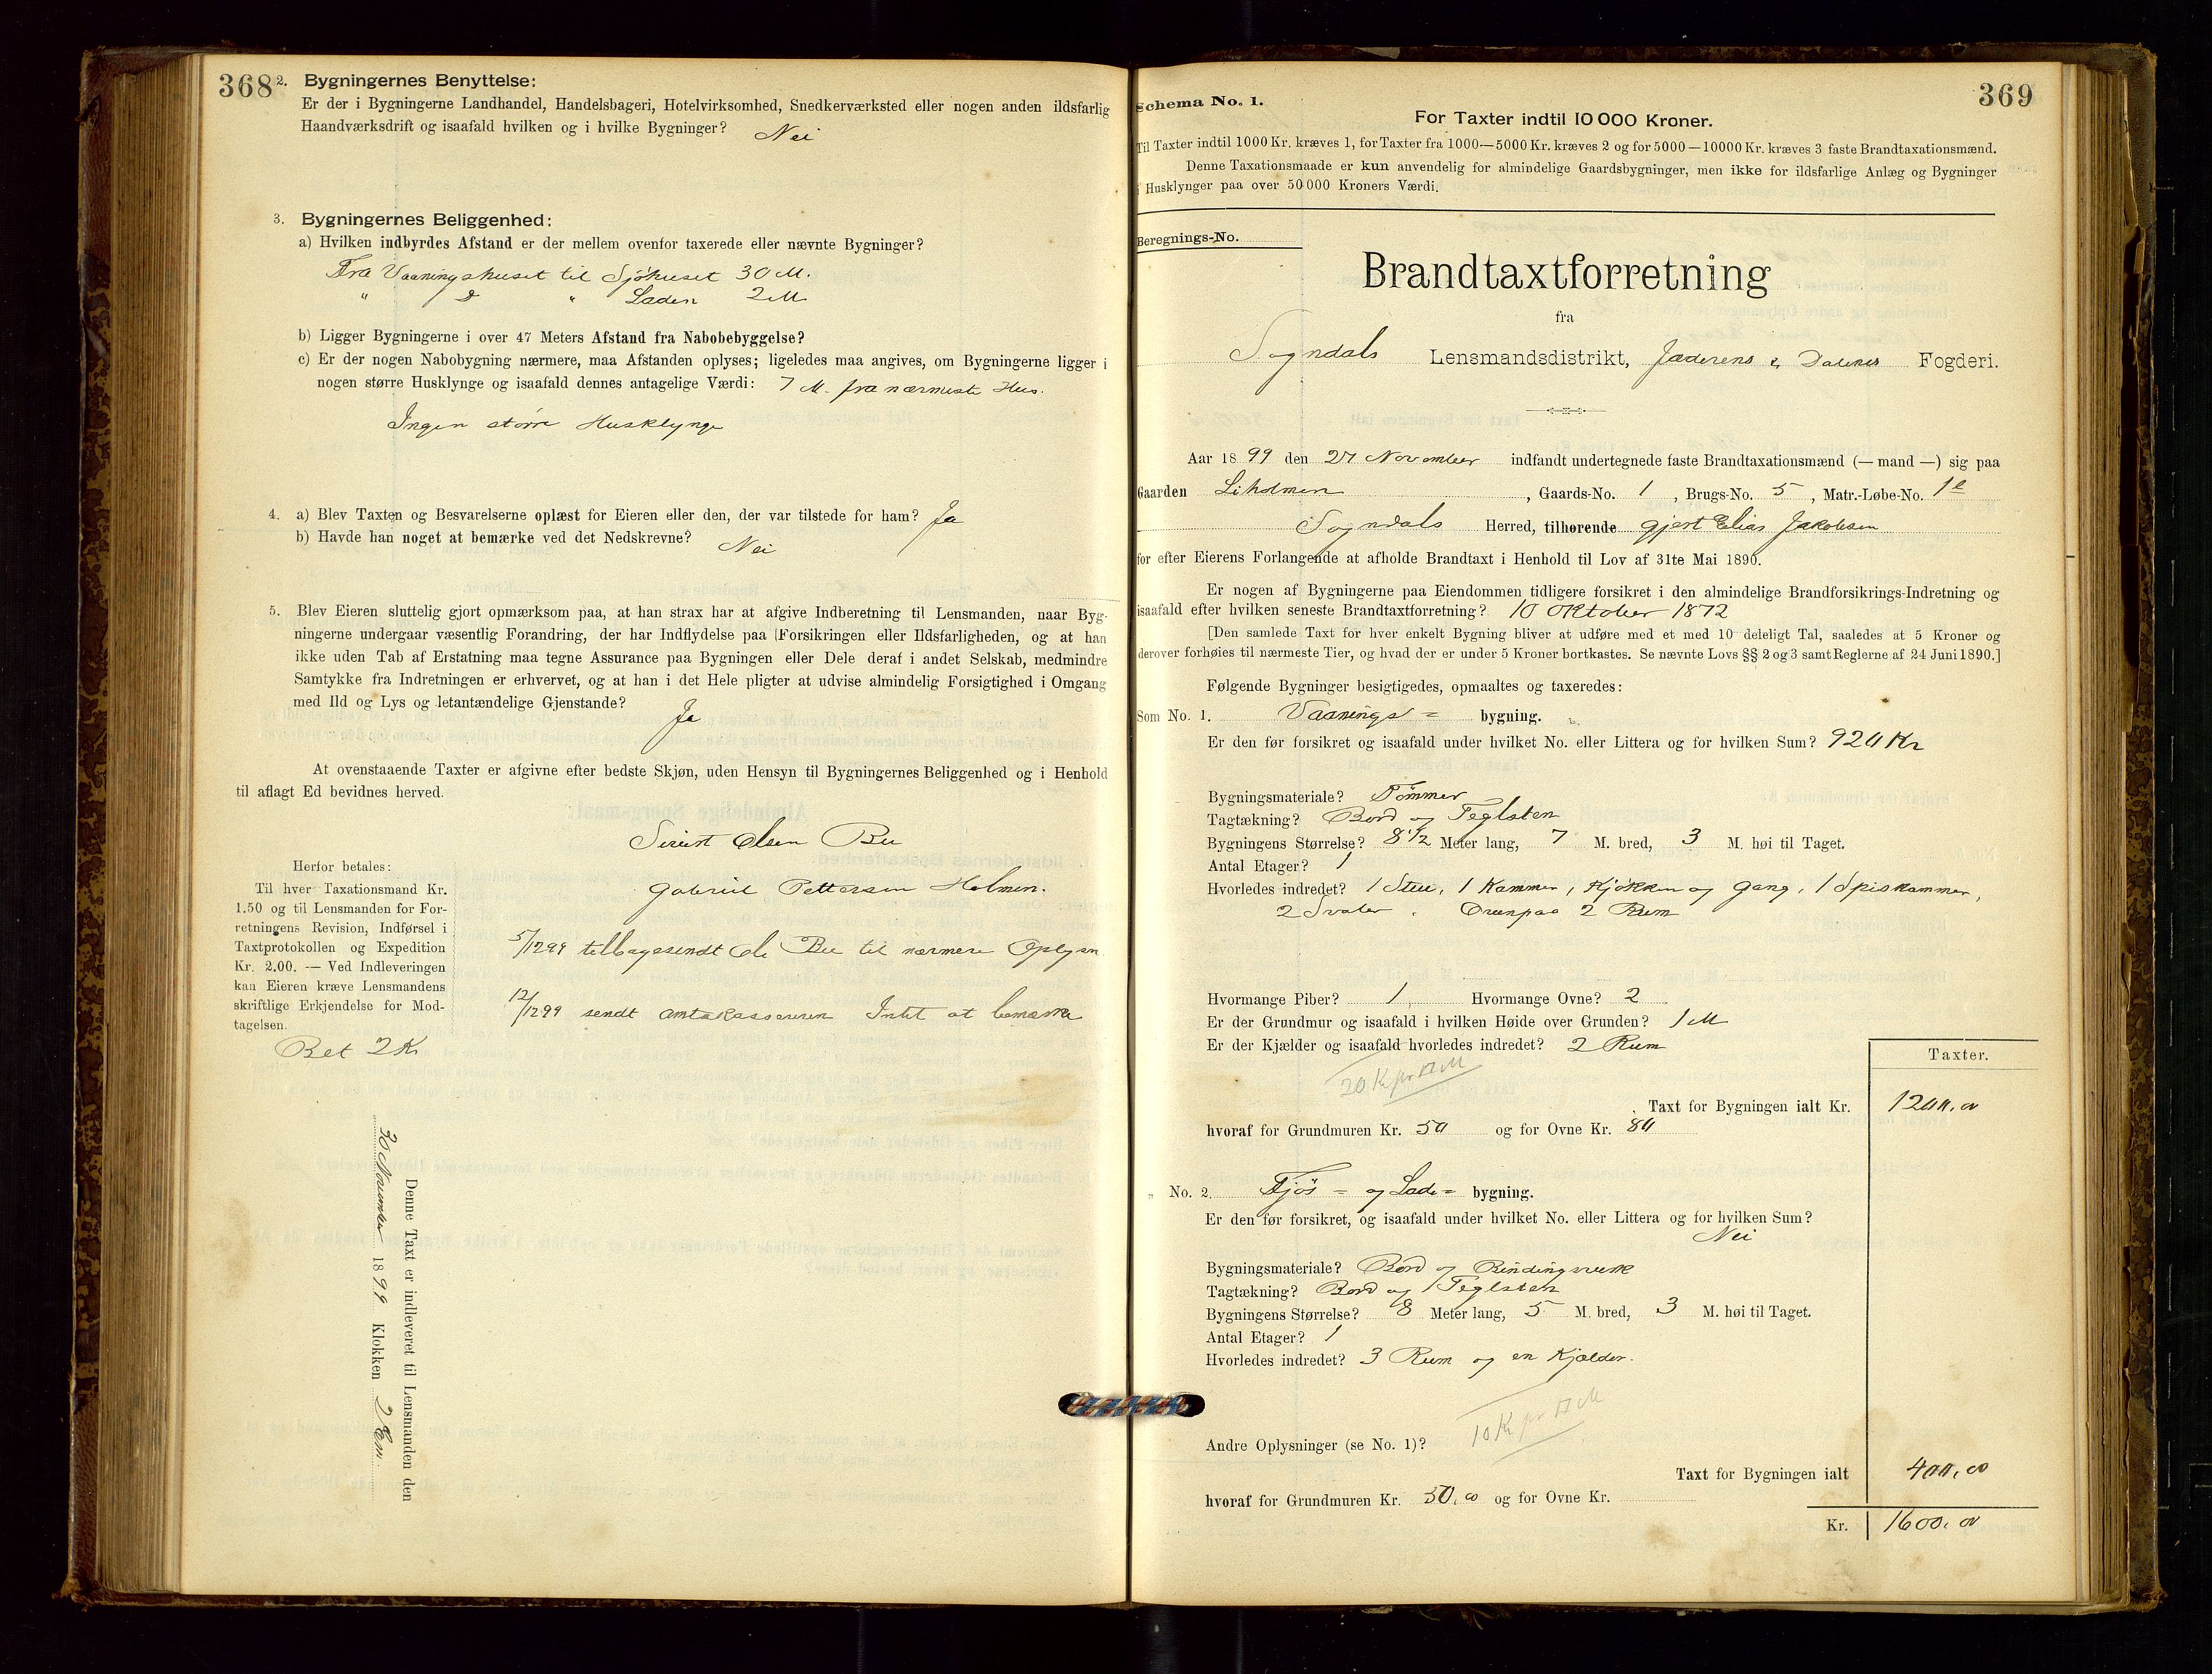 368
2. Bygningernes Benyttelse:
Er der i Bygningerne Landhandel, Handelsbageri, Hotelvirksomhed, Snedkerværksted eller nogen anden ildsfarlig
Haandværksdrift og isaafald hvilken og i hvilke Bygninger? Nei
3. Bygningernes Beliggenhed:
a) Hvilken indbyrdes Afstand er der mellem ovenfor taxerede eller nævnte Bygninger?
Fra Vaaningshuset til Sjöhuset 30 M.
" D " Laden 2 M
b) Ligger Bygningerne i over 47 Meters Afstand fra Nabobebyggelse?
c) Er der nogen Nabobygning nærmere, maa Afstanden oplyses; ligeledes maa angives, om Bygningerne ligger i
nogen større Husklynge og isaafald dennes antagelige Værdi: 7 M. fra nærmeste Hus.
Ingen större Husklynge
4. a) Blev Taxten og Besvarelserne oplæst for Eieren eller den, der var tilstede for ham? Ja
b) Havde han noget at bemærke ved det Nedskrevne? Nei
5. Blev Eieren sluttelig gjort opmærksom paa, at han strax har at afgive Indberetning til Lensmanden, naar Byg-
ningerne undergaar væsentlig Forandring, der har Indflydelse paa Forsikringen eller Ildsfarligheden, og at han
ikke uden Tab af Erstatning maa tegne Assurance paa Bygningen eller Dele deraf i andet Selskab, medmindre
Samtykke fra Indretningen er erhvervet, og at han i det Hele pligter at udvise almindelig Forsigtighed i Omgang
med Ild og Lys og letantændelige Gjenstande? Ja
At ovenstaaende Taxter er afgivne efter bedste Skjøn, uden Hensyn til Bygningernes Beliggenhed og i Henhold
til aflagt Ed bevidnes herved.
Olsen Bu
Gabriel Pettersen Holmen.
Herfor betales:
Til hver Taxationsmand Kr.
1.50 og til Lensmanden for For-
retningens Revision, Indførsel i
Taxtprotokollen og Expedition
Kr. 2.00. — Ved Indleveringen
kan Eieren kræve Lensmandens
skriftlige Erkjendelse for Mod-
tagelsen.
Bet 2 Kr
5/12 99 tilbagesendt Ole Bu til nærmere Oplysn
12/12 99 sendt Amtskassereren Intet at bemærke
Denne Taxt er indleveret til Lensmanden den
30 November 1899 Klokken 2 Em.
369
Schema No. 1.
For Taxter indtil 10 000 Kroner.
Til Taxter indtil 1000 Kr. kræves 1, for Taxter fra 1000—5000 Kr. kræves 2 og for 5000—10000 Kr. kræves 3 faste Brandtaxationsmænd.
Denne Taxationsmaade er kun anvendelig for almindelige Gaardsbygninger, men ikke for ildsfarlige Anlæg og Bygninger
i Husklynger paa over 50 000 Kroners Værdi.
Beregnings-No.
Brandtaxtforretning
fra
Sogndals Lensmandsdistrikt, Jæderens & Dalenes Fogderi.
Aar 1899 den 27 November indfandt undertegnede faste Brandtaxationsmænd (— mand —) sig paa
Gaarden Liholmen, Gaards-No. 1, Brugs-No. 5, Matr.-Løbe-No. 1e
Sogndals Herred, tilhørende Gjert Elias Jakobsen
for efter Eierens Forlangende at afholde Brandtaxt i Henhold til Lov af 31te Mai 1890.
Er nogen af Bygningerne paa Eiendommen tidligere forsikret i den almindelige Brandforsikrings-Indretning og
isaafald efter hvilken seneste Brandtaxtforretning? 10 Oktober 1872
[Den samlede Taxt for hver enkelt Bygning bliver at udføre med et med 10 deleligt Tal, saaledes at 5 Kroner og
derover forhøies til nærmeste Tier, og hvad der er under 5 Kroner bortkastes. Se nævnte Lovs §§ 2 og 3 samt Reglerne af 24 Juni 1890.]
Følgende Bygninger besigtigedes, opmaaltes og taxeredes:
Som No. 1. Vaanings = bygning.
Er den før forsikret og isaafald under hvilket No. eller Littera og for hvilken Sum? 920 Kr
Bygningsmateriale? Tömmer
Tagtækning? Bord og Teglsten
Bygningens Størrelse? 8 1/2 Meter lang, 7 M. bred, 3 M. høi til Taget.
Antal Etager? 1
Hvorledes indredet? 1 Stue, 1 Kammer, Kjökken og Gang, 1 Spiskammer,
2 Svaler. Ovenpaa 2 Rum
Hvormange Piber? 1, Hvormange Ovne? 2
Er der Grundmur og isaafald i hvilken Høide over Grunden? 1 M
Er der Kjælder og isaafald hvorledes indredet? 2 Rum
20 Kr pr □ M
Taxter.
Taxt for Bygningen ialt Kr. 1200,00
hvoraf for Grundmuren Kr. 50 og for Ovne Kr. 80
" No. 2. Fjös = og Lade = bygning.
Er den før forsikret, og isaafald under hvilket No. eller Littera og for hvilken Sum?
Nei
Bygningsmateriale? Bord og Bindingsverk
Tagtækning? Bord og Teglsten
Bygningens Størrelse? 8 Meter lang, 5 M. bred, 3 M. høi til Taget.
Antal Etager? 1
Hvorledes indredet? 3 Rum og en Kjælder.
10 Kr pr □ M
Andre Oplysninger (se No. 1)?
Taxt for Bygningen ialt 400,00
hvoraf for Grundmuren Kr. 50,00 og for Ovne Kr.
Kr. 1600,00